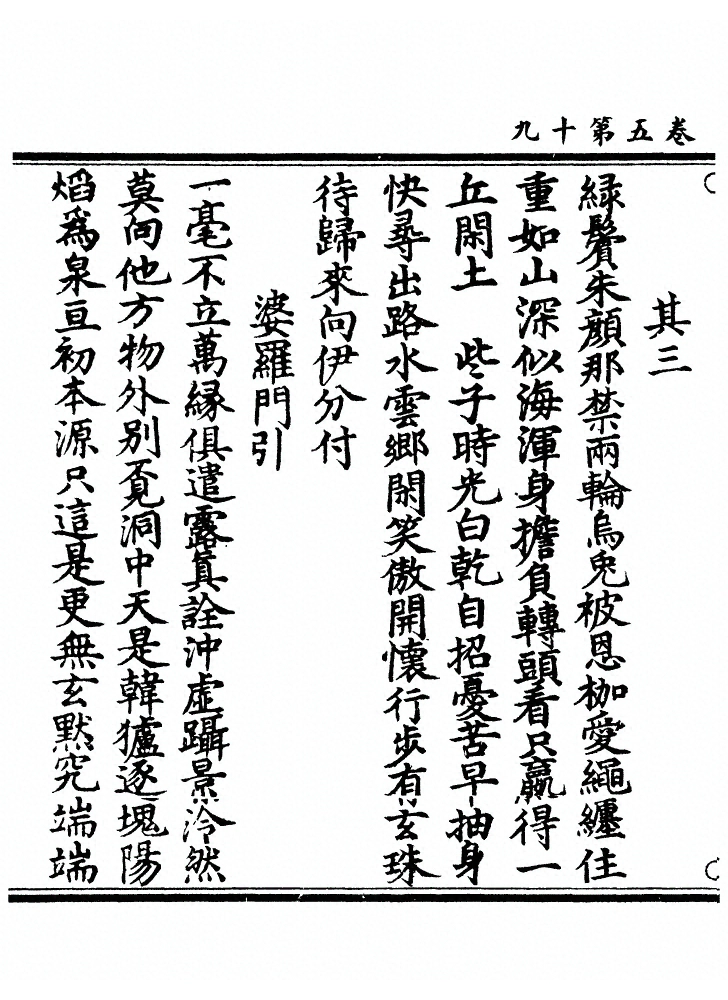 卷五第十九
其三
緑鬢朱顔那禁兩輪烏兎被恩枷愛繩纒住
重如山深似海渾身擔負轉頭看只贏得一
丘閑土　些子時光白乾自招憂苦早抽身
快尋出路水雲郷閑笑傲開懷行步有玄珠
待歸來向伊分付
婆羅門引
一毫不立萬縁俱遣露眞詮沖虛躡景泠然
莫向他方物外别覔洞中天是韓獹逐塊陽
熖爲泉亘初本源只這是更無玄默究端端